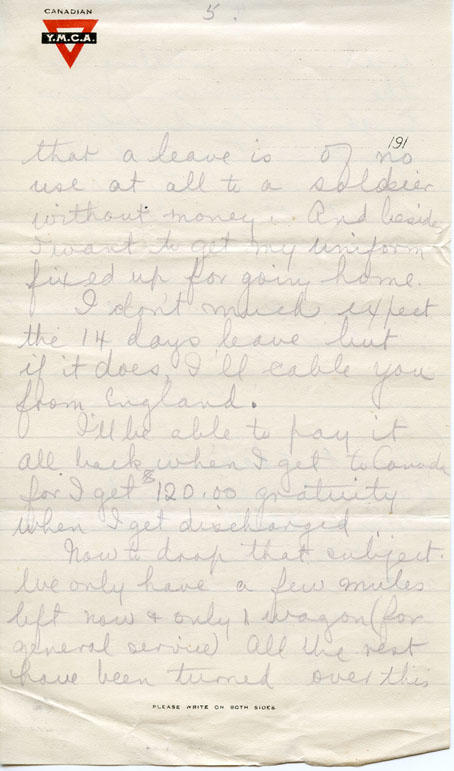 CANADIAN
Y.M.C.A.
5.
191
that a leave is of no
use at all to a soldier
without money. And beside
I want to get my uniform
fixed up for going home.
I don't much expect
the 14 days leave but
if it does, I'll cable you
from England.
I'll be able to pay it
all back when I get to Canada
for I get $120.00 gratuity
when I get discharged.
Now to drop that subject.
We only have a few mules
left now & only 1 wagon (for
general service) All the rest
have been turned over this
PLEASE WRITE ON BOTH SIDES